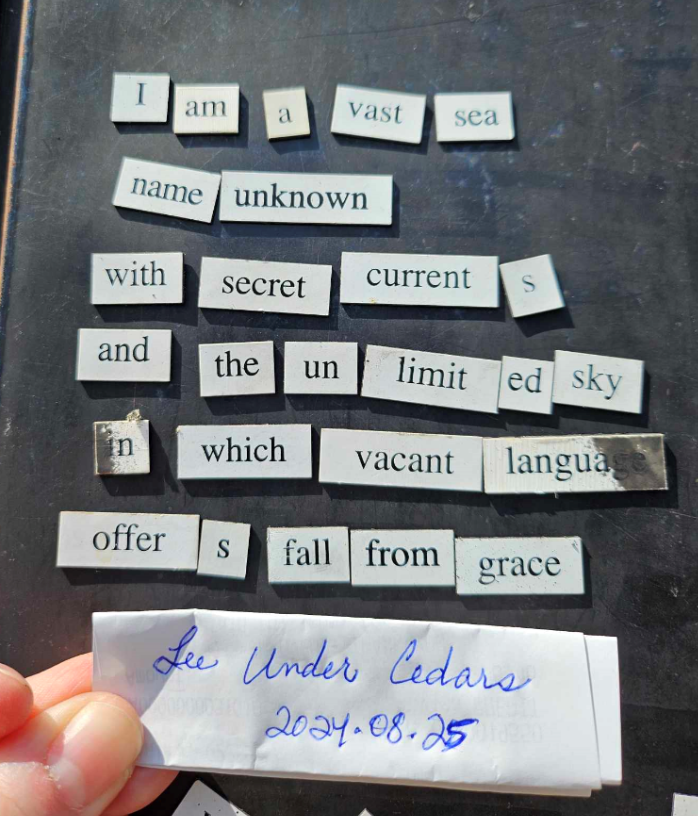 I am a vast sea
name unknown
with secret current s
and the un limit ed sky
in which vacant language
offer s fall from grace
Lee Under Cedars
2024.08.25